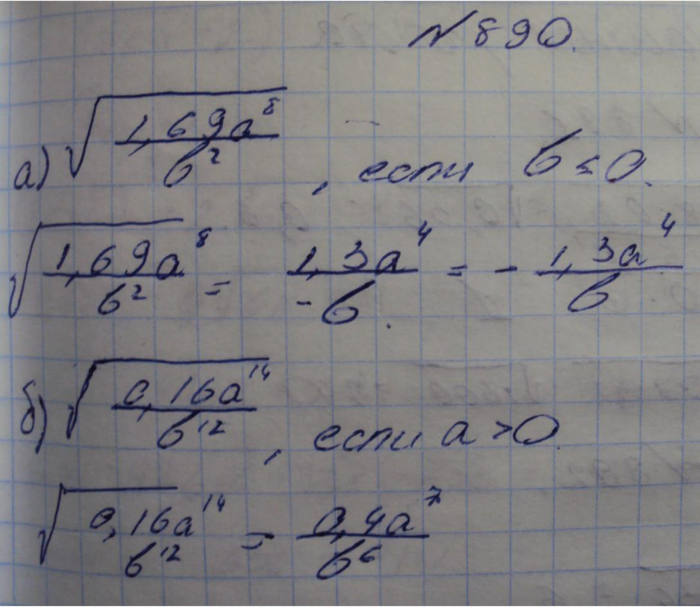 №890.
а) √(1,69a⁸/b²), если b<0.
√(1,69a⁸/b²) = 1,3a⁴/-b = - 1,3a⁴/b
б) √(0,16a¹⁴/b¹²), если a>0.
√(0,16a¹⁴/b¹²) = 0,4a⁷/b⁶